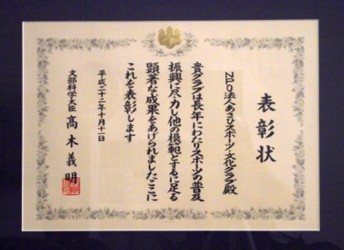 表彰状
NPO法人あさひスポーツ・文化クラブ殿
貴クラブは長年にわたりスポーツの普及
振興に尽力し他の模範とするに足る
顕著な成果をあげられましたここに
これを表彰します
平成二十二年十月十一日
文部科学大臣 髙木義明